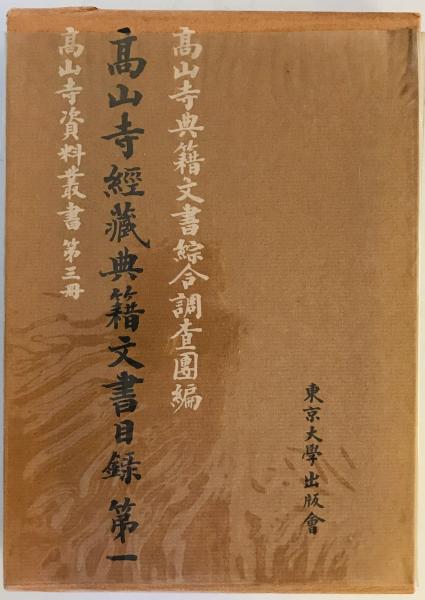 高山寺典籍文書綜合調査團編
高山寺經藏典籍文書目録 第一
高山寺資料叢書 第三冊
東京大學出版會